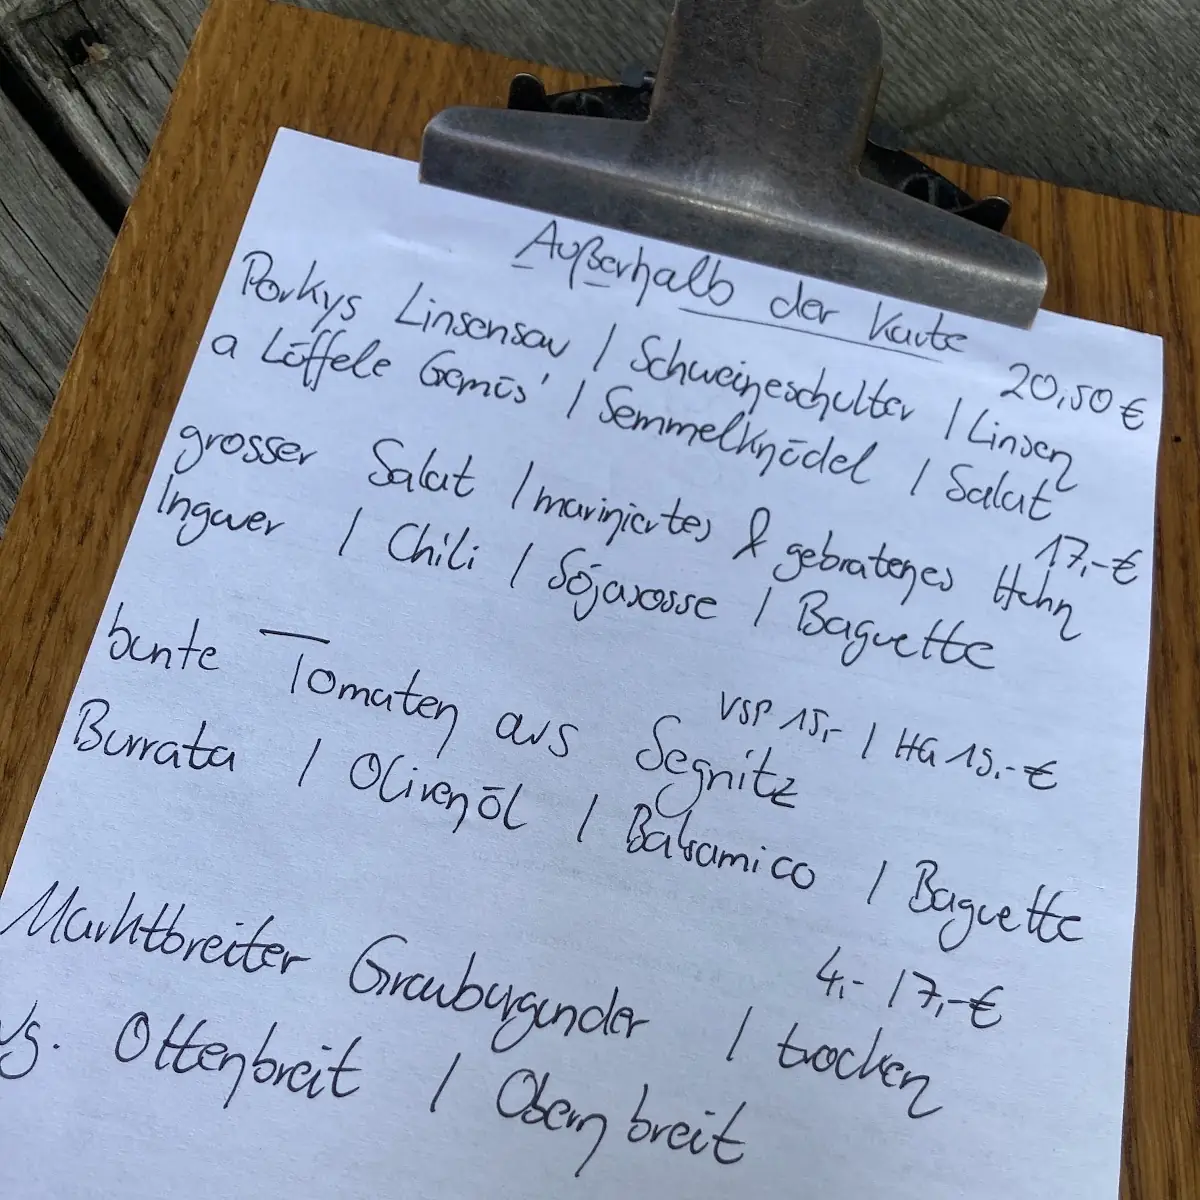 Außerhalb der Karte
20,50 €
Porkys Linsensau / Schweineschulter / Linsen
a Löffele Gemüs' / Semmelknödel / Salat
17,-€
grosser Salat / mariniertes & gebratenes Hehn
Ingwer / Chili / Sojasosse / Baguette
VSP 15,- / HG 19,-€
bunte Tomaten aus Segnitz
Burrata / Olivenöl / Balsamico / Baguette
4,- / 7,-€
Marktbreiter Grauburgunder / trocken
Vg. Ottenbreit / Obernbreit